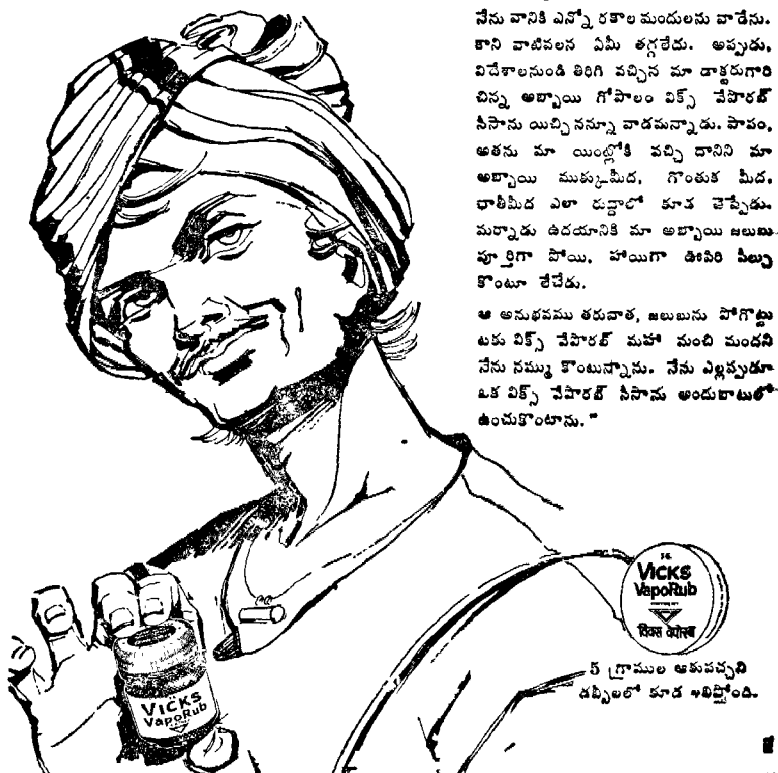 నేను వానికి ఎన్నో రకాల మందులను వాడేను.
కాని వాటివలన ఏమీ తగ్గలేదు. అప్పుడు,
విదేశాలనుండి తిరిగి వచ్చిన మా డాక్టరుగారి
చిన్న అబ్బాయి గోపాలం విక్స్ వేపొరబ్
సీసాను యిచ్చి నన్నూ వాడమన్నాడు. పాపం,
అతను మా యింట్లోకి వచ్చి దానిని మా
అబ్బాయి ముక్కుమీద, గొంతుక మీద,
ఛాతీమీద ఎలా రుద్దాలో కూడ చెప్పేడు.
మర్నాడు ఉదయానికి మా అబ్బాయి జలుబు
పూర్తిగా పోయి, హాయిగా ఊపిరి పీల్చు
కొంటూ లేచేడు.
ఆ అనుభవము తరువాత, జలుబును పోగొట్టు
టకు విక్స్ వేపొరబ్ మహా మంచి మందని
నేను నమ్ము కొంటున్నాను. నేను ఎల్లప్పుడూ
ఒక విక్స్ వేపొరబ్ సీసాను అందుబాటులో
ఉంచుకొంటాను."
VICKS
VapoRub
विक्स वेपोरब
5 గ్రాముల ఆకుపచ్చని
డబ్బీలలో కూడ లభిస్తోంది.
VICKS
VapoRub